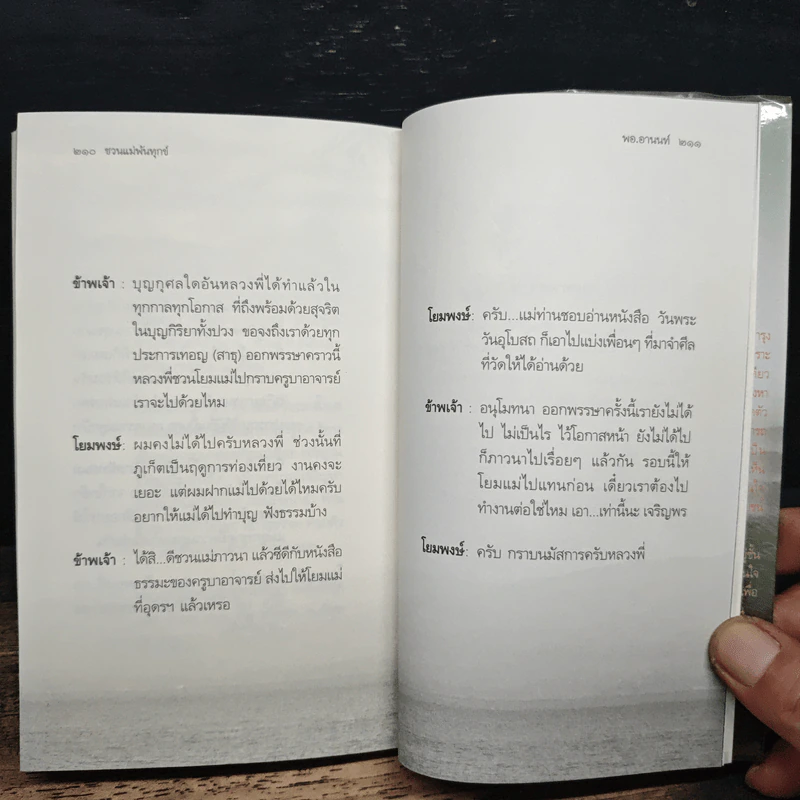 ๒๑๐ ชวนแม่พ้นทุกข์
ข้าพเจ้า : บุญกุศลใดอันหลวงพี่ได้ทำแล้วใน
ทุกกาลทุกโอกาส ที่ถึงพร้อมด้วยสุจริต
ในบุญกิริยาทั้งปวง ขอจงถึงเราด้วยทุก
ประการเทอญ (สาธุ) ออกพรรษาคราวนี้
หลวงพี่ชวนโยมแม่ไปกราบครูบาอาจารย์
เราจะไปด้วยไหม
โยมพงษ์: ผมคงไม่ได้ไปครับหลวงพี่ ช่วงนั้นที่
ภูเก็ตเป็นฤดูการท่องเที่ยว งานคงจะ
เยอะ แต่ผมฝากแม่ไปด้วยได้ไหมครับ
อยากให้แม่ได้ไปทำบุญ ฟังธรรมบ้าง
ข้าพเจ้า : ได้สิ...ดีชวนแม่ภาวนา แล้วซีดีกับหนังสือ
ธรรมะของครูบาอาจารย์ ส่งไปให้โยมแม่
ที่อุดรฯ แล้วเหรอ
พอ.อานนท์ ๒๑๑
โยมพงษ์: ครับ...แม่ท่านชอบอ่านหนังสือ วันพระ
วันอุโบสถ ก็เอาไปแบ่งเพื่อนๆ ที่มาจำศีล
ที่วัดให้ได้อ่านด้วย
ข้าพเจ้า : อนุโมทนา ออกพรรษาครั้งนี้เรายังไม่ได้
ไป ไม่เป็นไร ไว้โอกาสหน้า ยังไม่ได้ไป
ก็ภาวนาไปเรื่อยๆ แล้วกัน รอบนี้ให้
โยมแม่ไปแทนก่อน เดี๋ยวเราต้องไป
ทำงานต่อใช่ไหม เอา...เท่านี้นะ เจริญพร
โยมพงษ์: ครับ กราบนมัสการครับหลวงพี่